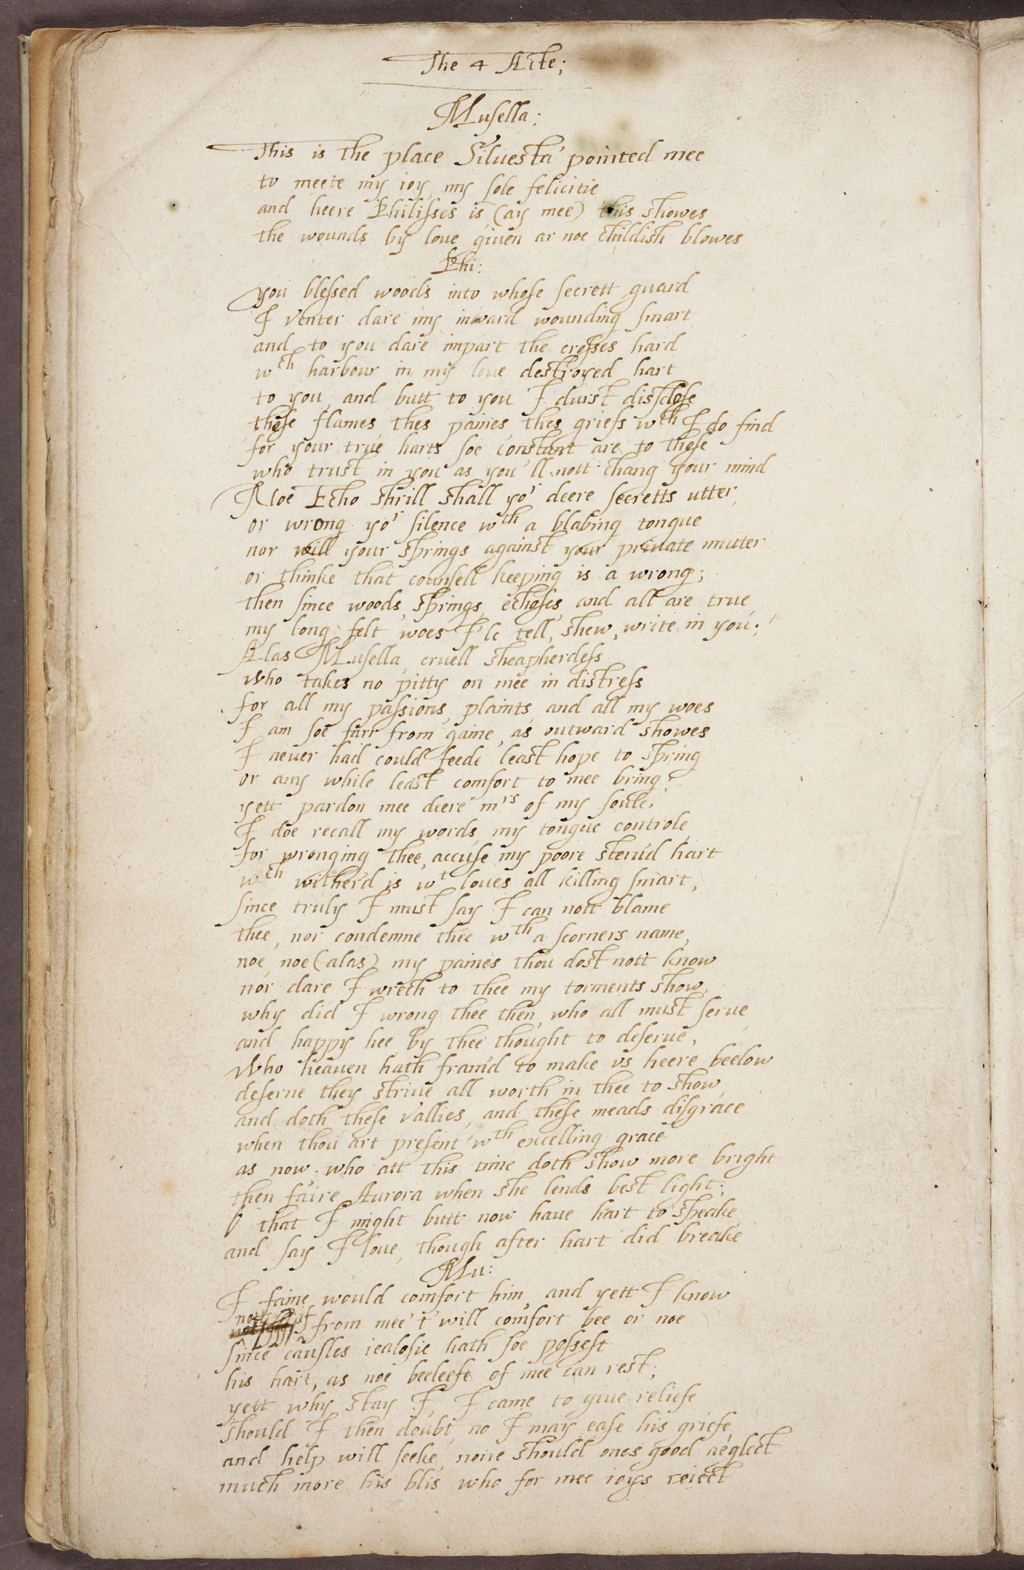 The 4 Acte;
Musella:
This is the place Siluesta 'pointed mee
to meete my ioy, my sole felicitie
and heere Philisses is (ay mee) this showes
the wounds by loue giuen ar noe childish blowes
Phi:
You blessed woods into whose secrett guard
I venter dare my inward wounding smart
and to you dare impart the crosses hard
wch harbour in my loue destroyed hart
to you, and butt to you I durst disclose
these flames thes paines thes griefs wch I do find
for your true harts soe constant are to those
who trust in you as you'll nott chang your mind
Noe Echo shrill shall yor deere secretts utter,
or wrong yor silence wth a blabing tongue
nor will your springs against your priuate mutter
or thinke that counsell keeping is a wrong;
then since woods, springs, echoses, and all are true
my long felt woes I'le tell, shew, write in you.
Alas Musella, cruell sheapherdess
who takes no pitty on mee in distress
for all my passions, plaints and all my woes
I am soe farr from gaine, as outward showes
I neuer had could feede least hope to spring
or any while least comfort to mee bring,
yett pardon mee deere mrs of my soule,
I doe recall my words, my tongue controle,
for wronging thee, accuse my poore steru'd hart
wch wither'd is wt loues all killing smart,
since truly I must say I can nott blame
thee, nor condemne thee wth a scorners name,
noe, noe (alas) my paines thou dost nott know
nor dare I wrech to thee my torments show,
why did I wrong thee then, who all must serue
and happy hee by thee thought to deserue,
Who heauen hath fram'd to make us heere beelow
deserne they striue all worth in thee to show,
and doth these vallies, and these meads disgrace
when thou art present wth excelling grace
as now, who att this time doth show more bright
then faire Aurora when she lends best light;
O that I might butt now haue hart to speake
and say I loue, though after hart did breake
Mu:
I faine would comfort him, and yett I know
not if from mee 't will comfort bee or noe
since causles iealosie hath soe possest
his hart, as noe beeleefe of mee can rest;
yett why stay I, I came to giue reliefe
should I then doubt, no I may ease his griefe,
and help will seeke, none should ones good neglect
much more his blis who for mee ioys reiect